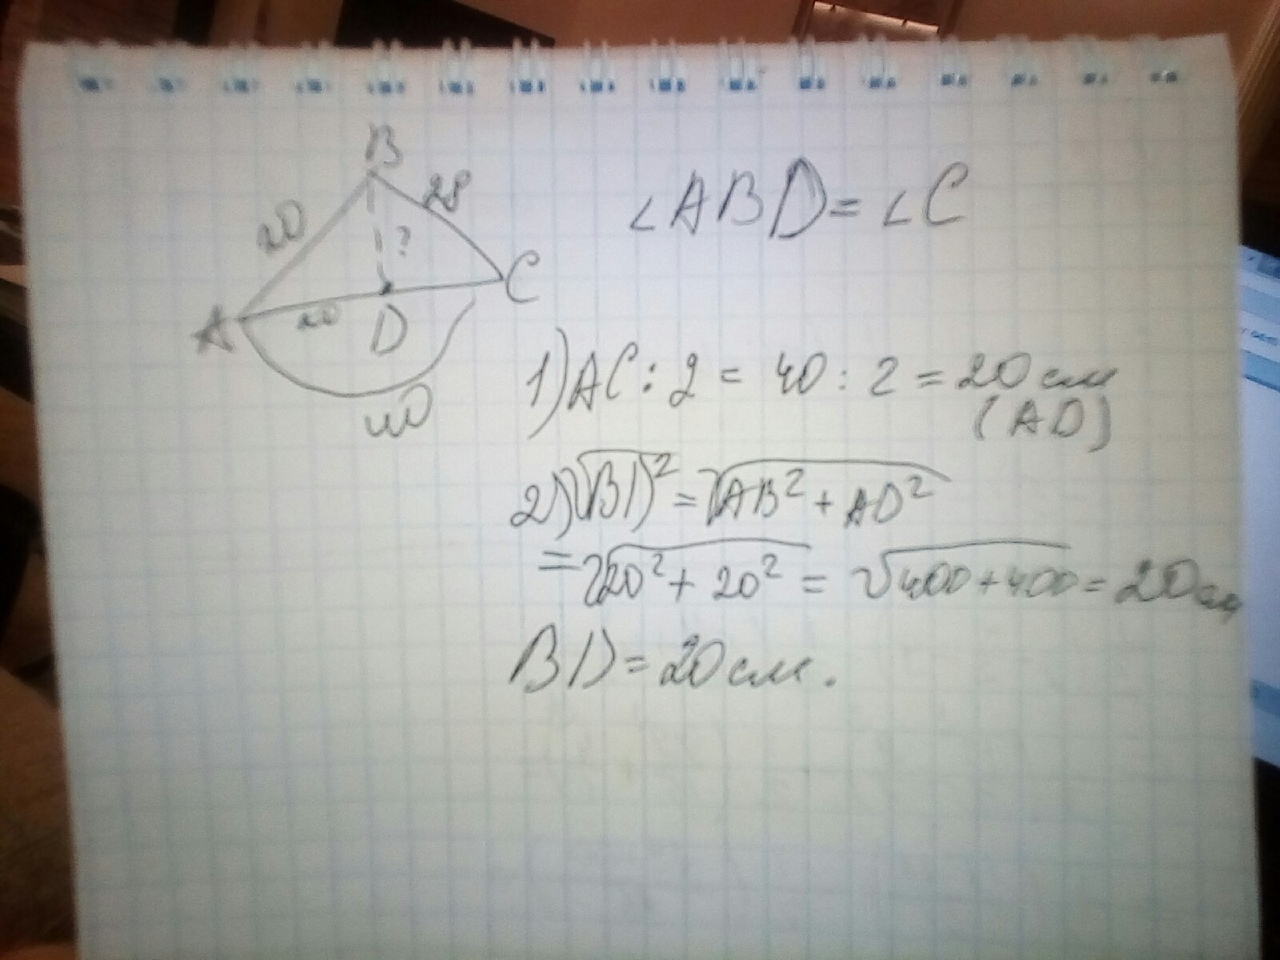 B
20
28
?
A
20
D
C
40
∠ABD = ∠C
1) AC : 2 = 40 : 2 = 20 см
(AD)
2) √(BD)² = √AB² + AD²
= √20² + 20² = √400 + 400 = 20 см
BD = 20 см.